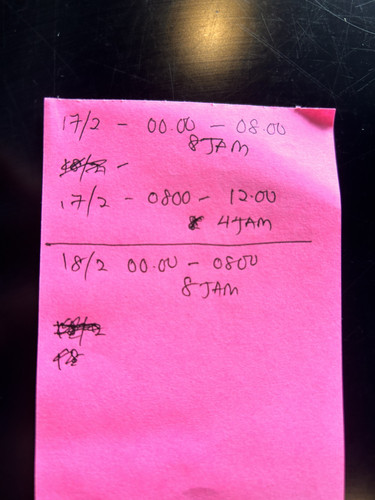 17/2 - 00.00 - 08.00
8 JAM
-
17/2 - 0800 - 12.00
4 JAM
18/2 00.00 - 0800
8 JAM